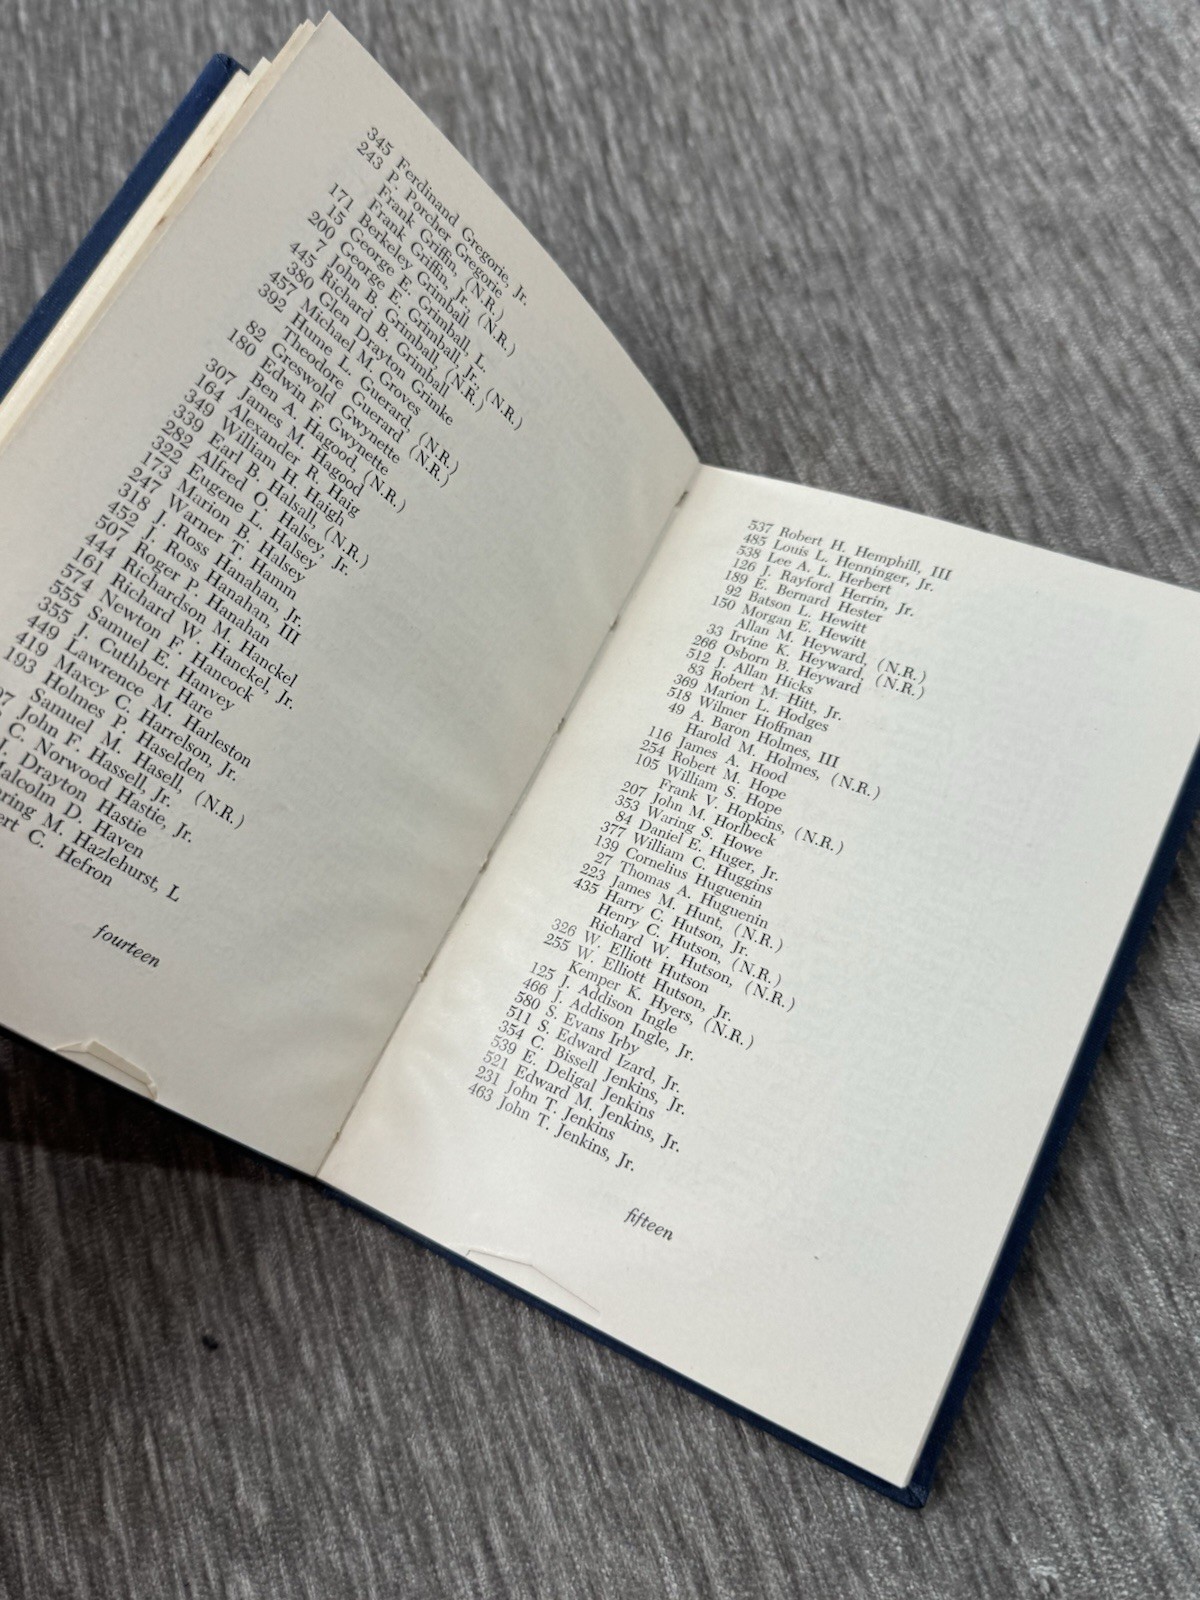 345 Ferdinand Gregorie, Jr.
243 P. Porcher Gregorie
Frank Griffin, (N.R.)
Frank Griffin, Jr., (N.R.)
171 Berkeley Grimball
15 George E. Grimball, L.
200 George E. Grimball, Jr., (N.R.)
7 John B. Grimball, (N.R.)
445 Richard B. Grimball
380 Glen Drayton Grimke
457 Michael M. Groves
392 Hume L. Guerard, (N.R.)
Theodore Guerard (N.R.)
82 Greswold Gwynette
180 Edwin F. Gwynette
Ben A. Hagood, (N.R.)
307 James M. Hagood
164 Alexander R. Haig
349 William H. Haigh
339 Earl B. Halsall, (N.R.)
282 Alfred O. Halsey, Jr.
322 Eugene L. Halsey
173 Marion B. Halsey
247 Warner T. Hamm
318 J. Ross Hanahan, Jr.
452 J. Ross Hanahan, III
507 Roger P. Hanahan
444 Richardson M. Hanckel
161 Richard W. Hanckel, Jr.
574 Newton F. Hancock
555 Samuel E. Hanvey
355 J. Cuthbert Hare
449 Lawrence M. Harleston
419 Maxcy C. Harrelson, Jr.
193 Holmes P. Haselden
Samuel M. Hasell, (N.R.)
John F. Hassell, Jr.
C. Norwood Hastie, Jr.
Drayton Hastie
Malcolm D. Haven
M. Hazlehurst, L
C. Hefron
fourteen
537 Robert H. Hemphill, III
485 Louis L. Henninger, Jr.
538 Lee A. L. Herbert
126 J. Rayford Herrin, Jr.
189 E. Bernard Hester
92 Batson L. Hewitt
150 Morgan E. Hewitt
Allan M. Heyward, (N.R.)
33 Irvine K. Heyward, (N.R.)
266 Osborn B. Heyward
512 J. Allan Hicks
83 Robert M. Hitt, Jr.
369 Marion L. Hodges
518 Wilmer Hoffman
49 A. Baron Holmes, III
Harold M. Holmes, (N.R.)
116 James A. Hood
254 Robert M. Hope
105 William S. Hope
Frank V. Hopkins, (N.R.)
207 John M. Horlbeck
353 Waring S. Howe
84 Daniel E. Huger, Jr.
377 William C. Huggins
139 Cornelius Huguenin
27 Thomas A. Huguenin
223 James M. Hunt, (N.R.)
435 Harry C. Hutson, Jr.
Henry C. Hutson, (N.R.)
Richard W. Hutson, (N.R.)
326 W. Elliott Hutson
255 W. Elliott Hutson, Jr.
Kemper K. Hyers, (N.R.)
125 J. Addison Ingle
466 J. Addison Ingle, Jr.
580 S. Evans Irby
511 S. Edward Izard, Jr.
354 C. Bissell Jenkins, Jr.
539 E. Deligal Jenkins
521 Edward M. Jenkins, Jr.
231 John T. Jenkins
463 John T. Jenkins, Jr.
fifteen